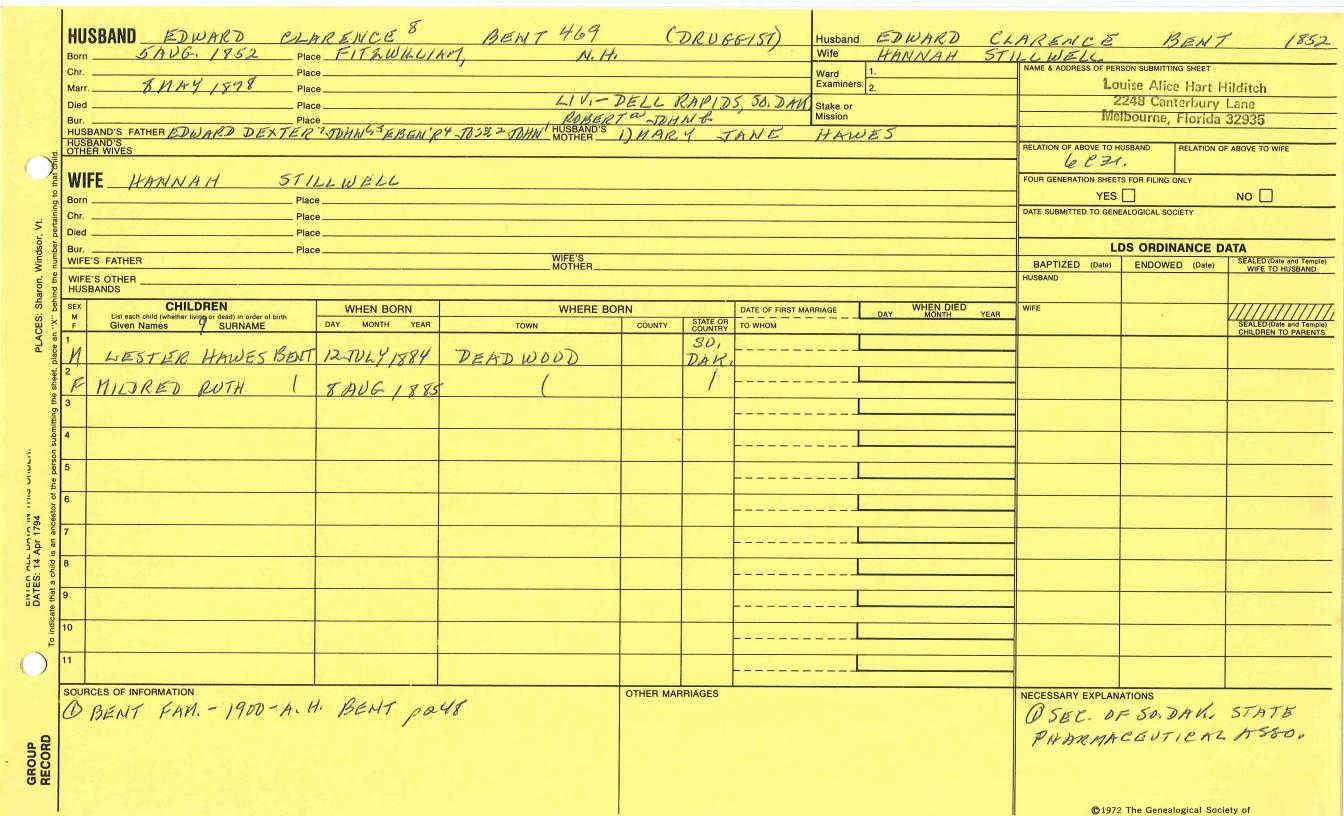 HUSBAND EDWARD CLARENCE 8 BENT 469 (DRUGGIST)
Born 5 AUG. 1852 Place FITZWILLIAM, N.H.
Chr. Place
Marr. 8 MAY 1878 Place
Died Place LIV.- DELL RAPIDS, SO. DAK
Bur. Place ROBERT JOHN
HUSBAND'S FATHER EDWARD DEXTER JOHN EBEN'R4 JOHN1 HUSBAND'S MOTHER 1) MARY JANE HAWES
HUSBAND'S OTHER WIVES
WIFE HANNAH STILLWELL
Born Place
Chr. Place
Died Place
Bur. Place
WIFE'S FATHER WIFE'S MOTHER
WIFE'S OTHER HUSBANDS
Husband EDWARD CLARENCE BENT 1852
Wife HANNAH STILLWELL
Ward Examiners: 1.
2.
Stake or Mission
NAME & ADDRESS OF PERSON SUBMITTING SHEET
Louise Alice Hart Hilditch
2248 Canterbury Lane
Melbourne, Florida 32935
RELATION OF ABOVE TO HUSBAND RELATION OF ABOVE TO WIFE
FOUR GENERATION SHEETS FOR FILING ONLY
YES NO
DATE SUBMITTED TO GENEALOGICAL SOCIETY
LDS ORDINANCE DATA
BAPTIZED (Date) ENDOWED (Date) SEALED (Date and Temple) WIFE TO HUSBAND
HUSBAND
WIFE
SEALED (Date and Temple) CHILDREN TO PARENTS
SEX M F
CHILDREN
List each child (whether living or dead) in order of birth
Given Names 9 SURNAME
WHEN BORN
DAY MONTH YEAR
WHERE BORN
TOWN COUNTY STATE OR COUNTRY
DATE OF FIRST MARRIAGE
TO WHOM
WHEN DIED
DAY MONTH YEAR
1 M LESTER HAWES BENT 12 JULY 1884 DEADWOOD SO. DAK.
2 F MILDRED RUTH 8 AUG 1885
3
4
5
6
7
8
9
10
11
SOURCES OF INFORMATION
① BENT FAM. - 1900 - A.H. BENT
OTHER MARRIAGES
NECESSARY EXPLANATIONS
① SEC. OF SO. DAK. STATE
PHARMACEUTICAL ASSO.
©1972 The Genealogical Society of
PLACES: Sharon, Windsor, Vt.
ENTER ALL DATA IN THIS ORDER:
DATES: 14 Apr 1794
To indicate that a child is an ancestor of the person submitting the sheet, place an "X" behind the number pertaining to that child.
GROUP RECORD